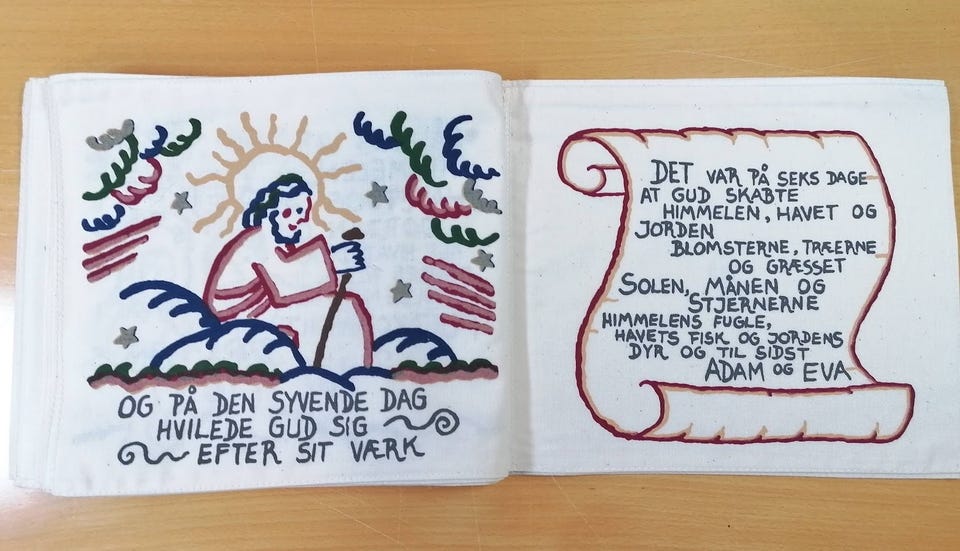 OG PÅ DEN SYVENDE DAG
HVILEDE GUD SIG
EFTER SIT VÆRK
DET VAR PÅ SEKS DAGE
AT GUD SKABTE
HIMMELEN, HAVET OG
JORDEN
BLOMSTERNE, TRÆERNE
OG GRÆSSET
SOLEN, MÅNEN OG
STJERNERNE
HIMMELENS FUGLE,
HAVETS FISK OG JORDENS
DYR OG TIL SIDST
ADAM OG EVA